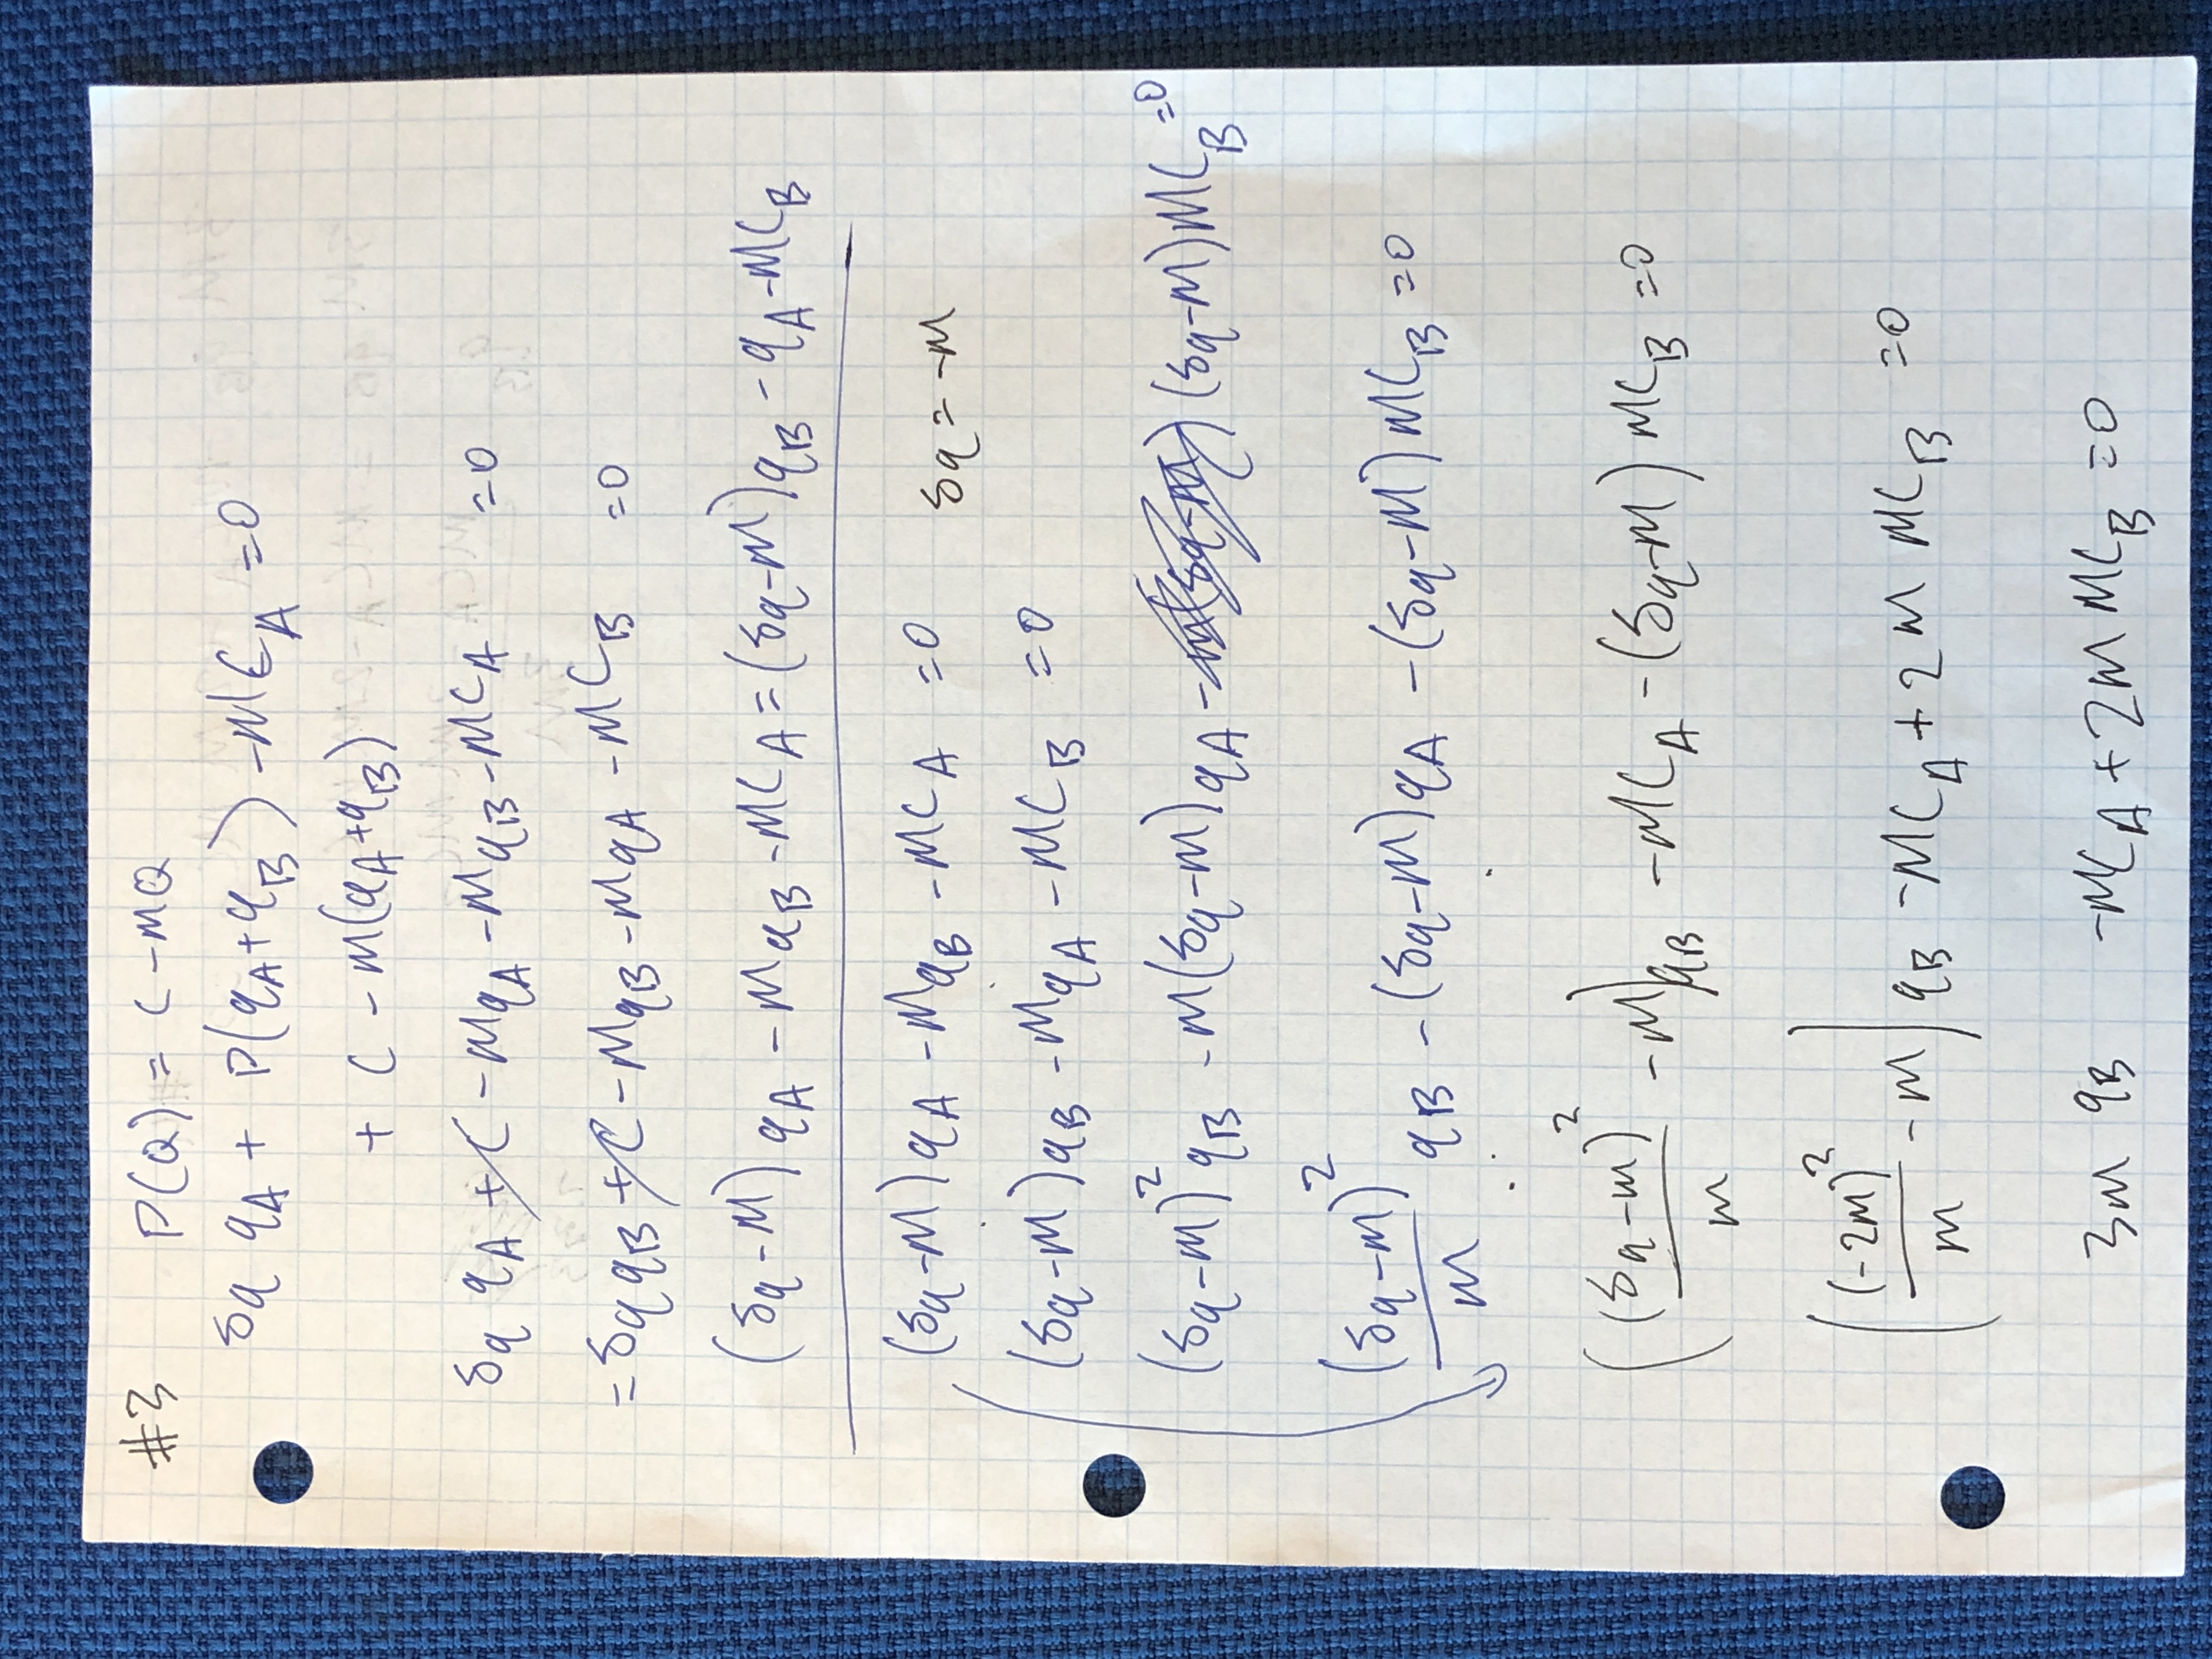 #3 P(Q) = C - MQ
δq qA + P(qA+qB) - MCA = 0
+ C - M(qA+qB)
δq qA + C - MqA - MqB - MCA = 0
= δq qB + C - MqB - MqA - MCB = 0
(δq - M) qA - MqB - MCA = (δq - M)qB - qA - MCB
(δq - M) qA - MqB - MCA = 0 δq = -M
(δq - M)qB - MqA - MCB = 0
(δq - M)² qB - M(δq - M)qA - (δq - M)MCB = 0
(δq - M)²/M qB - (δq - M)qA - (δq - M) MCB = 0
((δq - M)²/M - M)qB - MCA - (δq - M) MCB = 0
((-2M)²/M - M) qB - MCA + 2M MCB = 0
3M qB - MCA + 2M MCB = 0